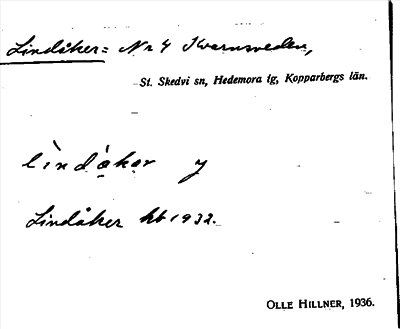 Lindåker = Nr 4 Kvarnsveden,
St. Skedvi sn, Hedemora tg, Kopparbergs län.
lìndåkər
Lindåker kb 1932.
OLLE HILLNER, 1936.